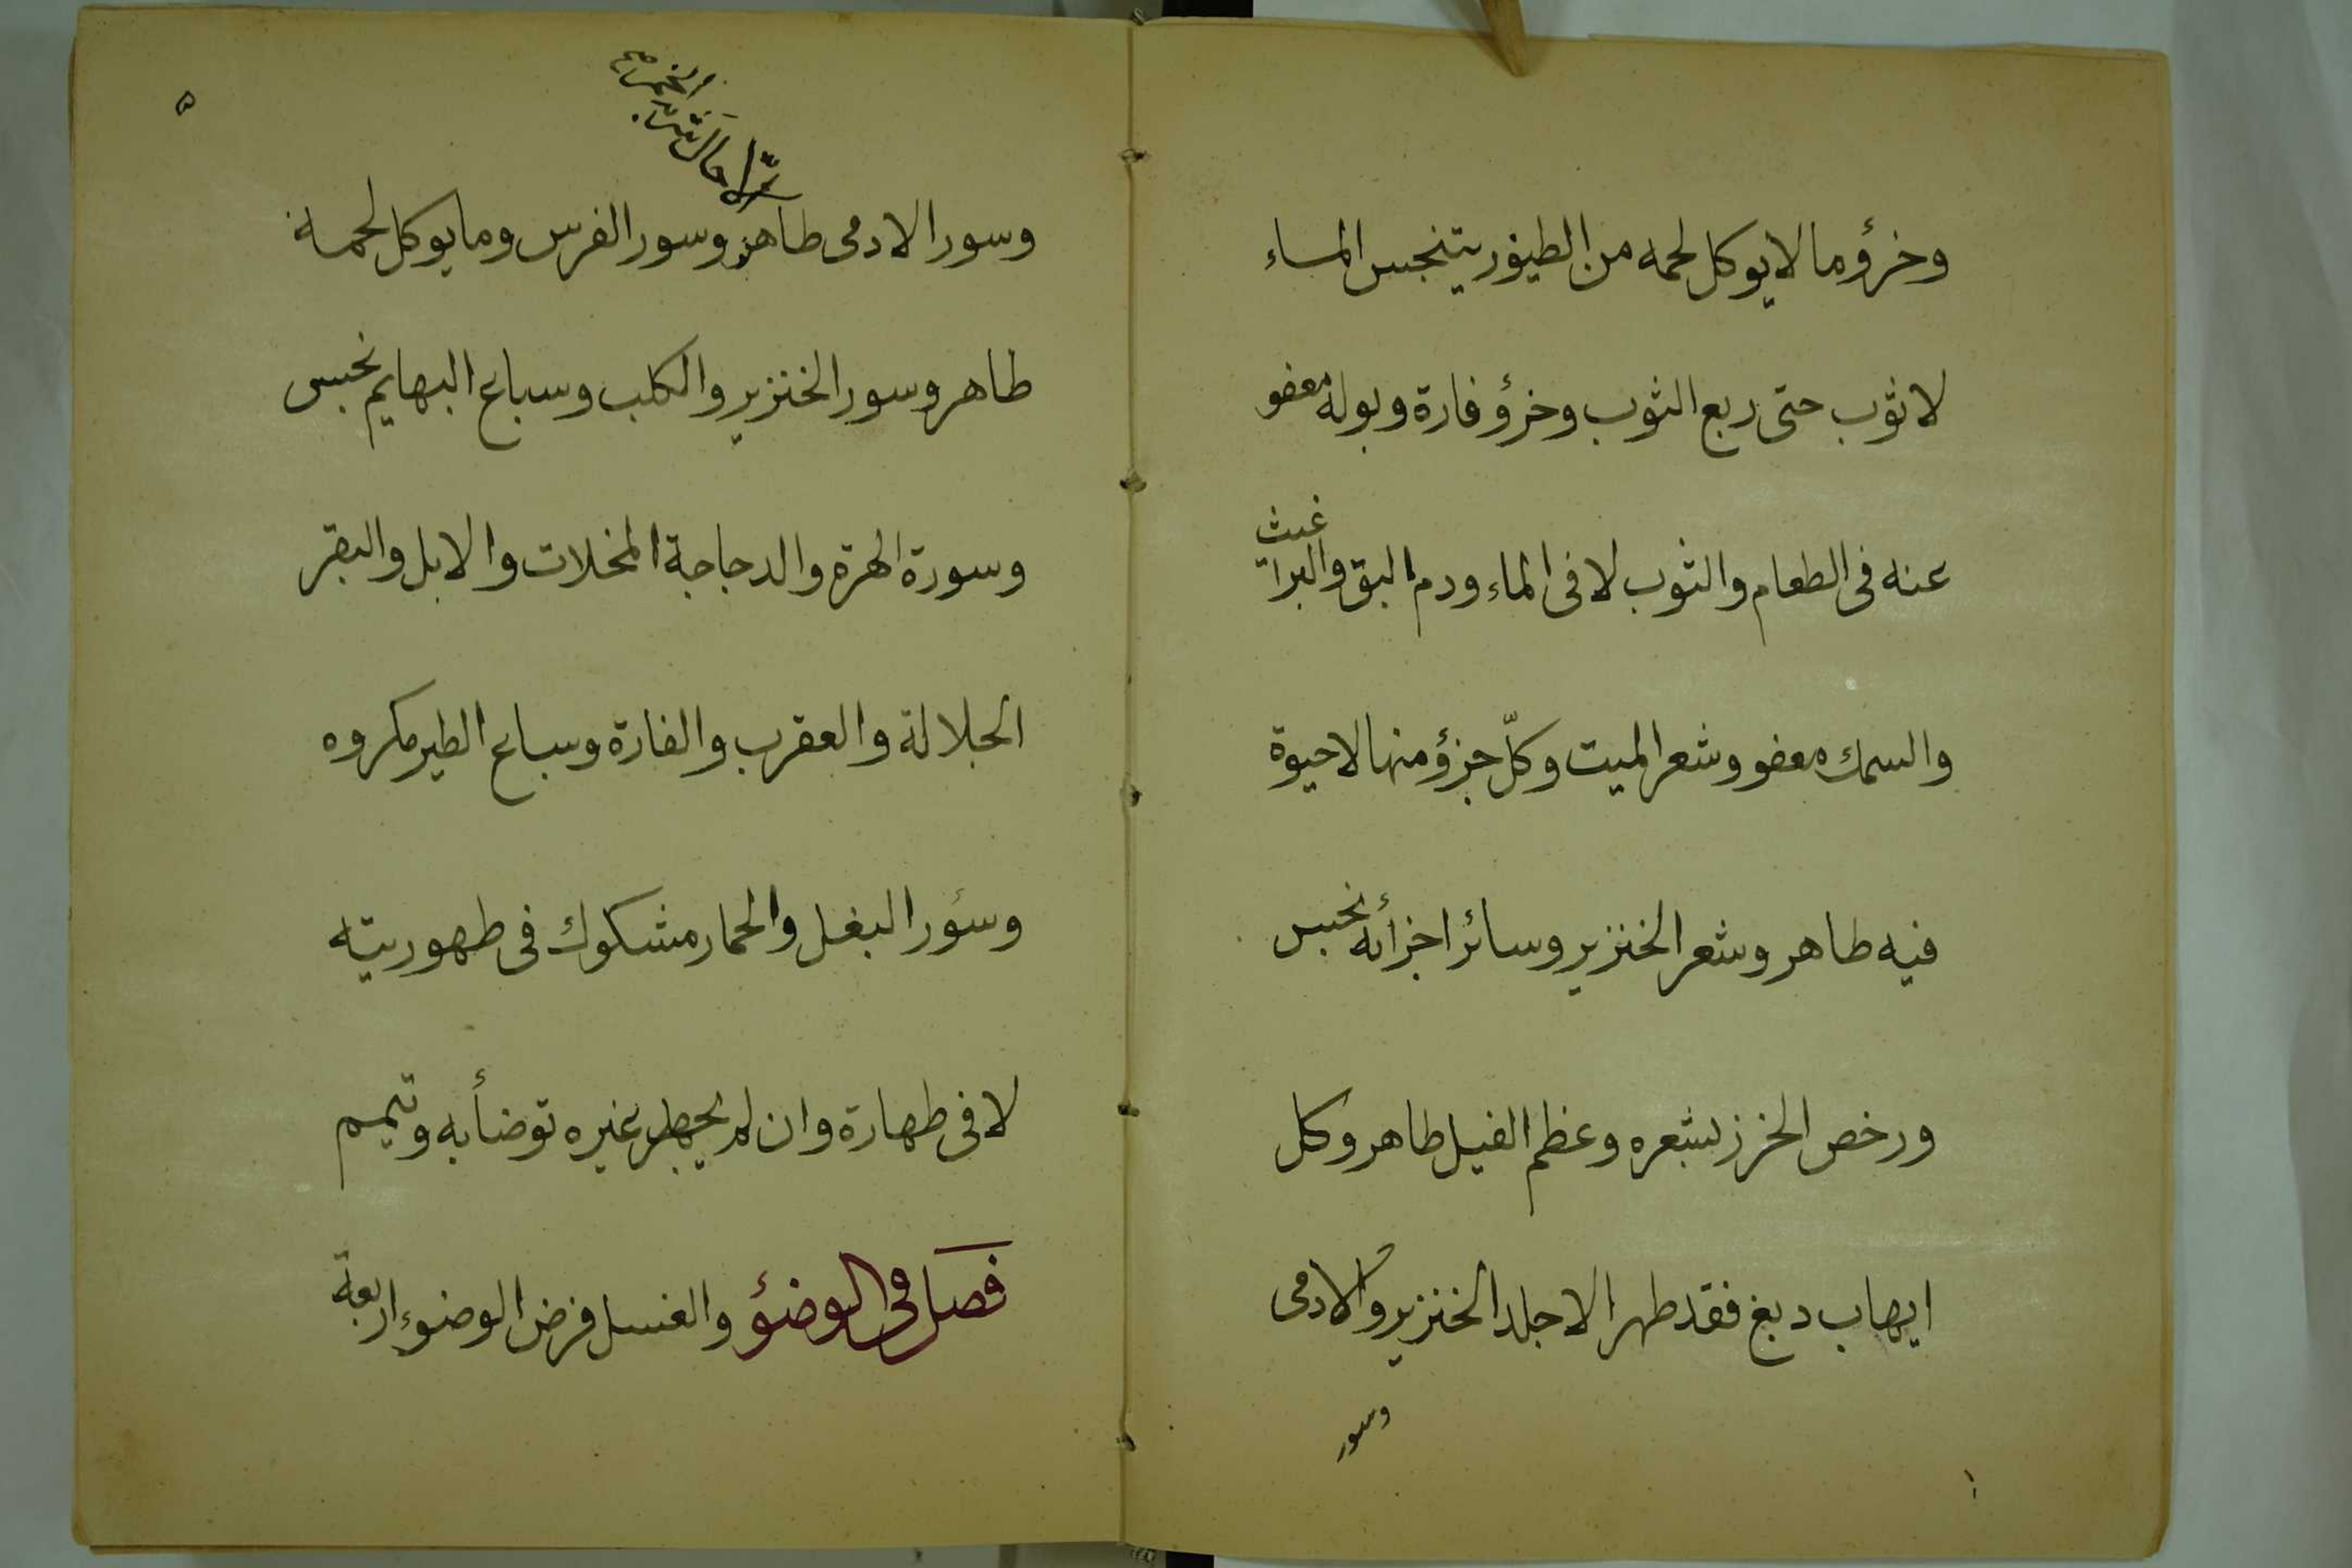 وخرؤ ما لا يوكل لحمه من الطيور يتنجس الماء
لا ثوب حتى ربع الثوب وخرؤ فارة وبوله معفو
عنه فى الطعام والثوب لا فى الماء ودم البق والبرا
غيث
والسمك معفو وشعر الميت وكلّ جزؤ منها لا حيوة
فيه طاهر وشعر الخنزير وسائر اجزأئه نجس
ورخص الخرز بشعره وعظم الفيل طاهر وكل
ايهاب دبغ فقد طهر الا جلد الخنزير والادمى
وسور
٥
الاحال شرب الخمر
وسور الادمى طاهر وسور الفرس وما يوكل لحمه
طاهر وسور الخنزير والكلب وسباع البهايم نجس
وسورة الهرة والدجاجة المخلات والابل والبقر
الجلالة والعقرب والفارة وسباع الطير مكروه
وسؤر البغل والحمار مشكوك فى طهوريته
لا فى طهارة وان لم يجد غيره توضأ به وتيمم
فصل فى الوضؤ والغسل فرض الوضوء اربعة